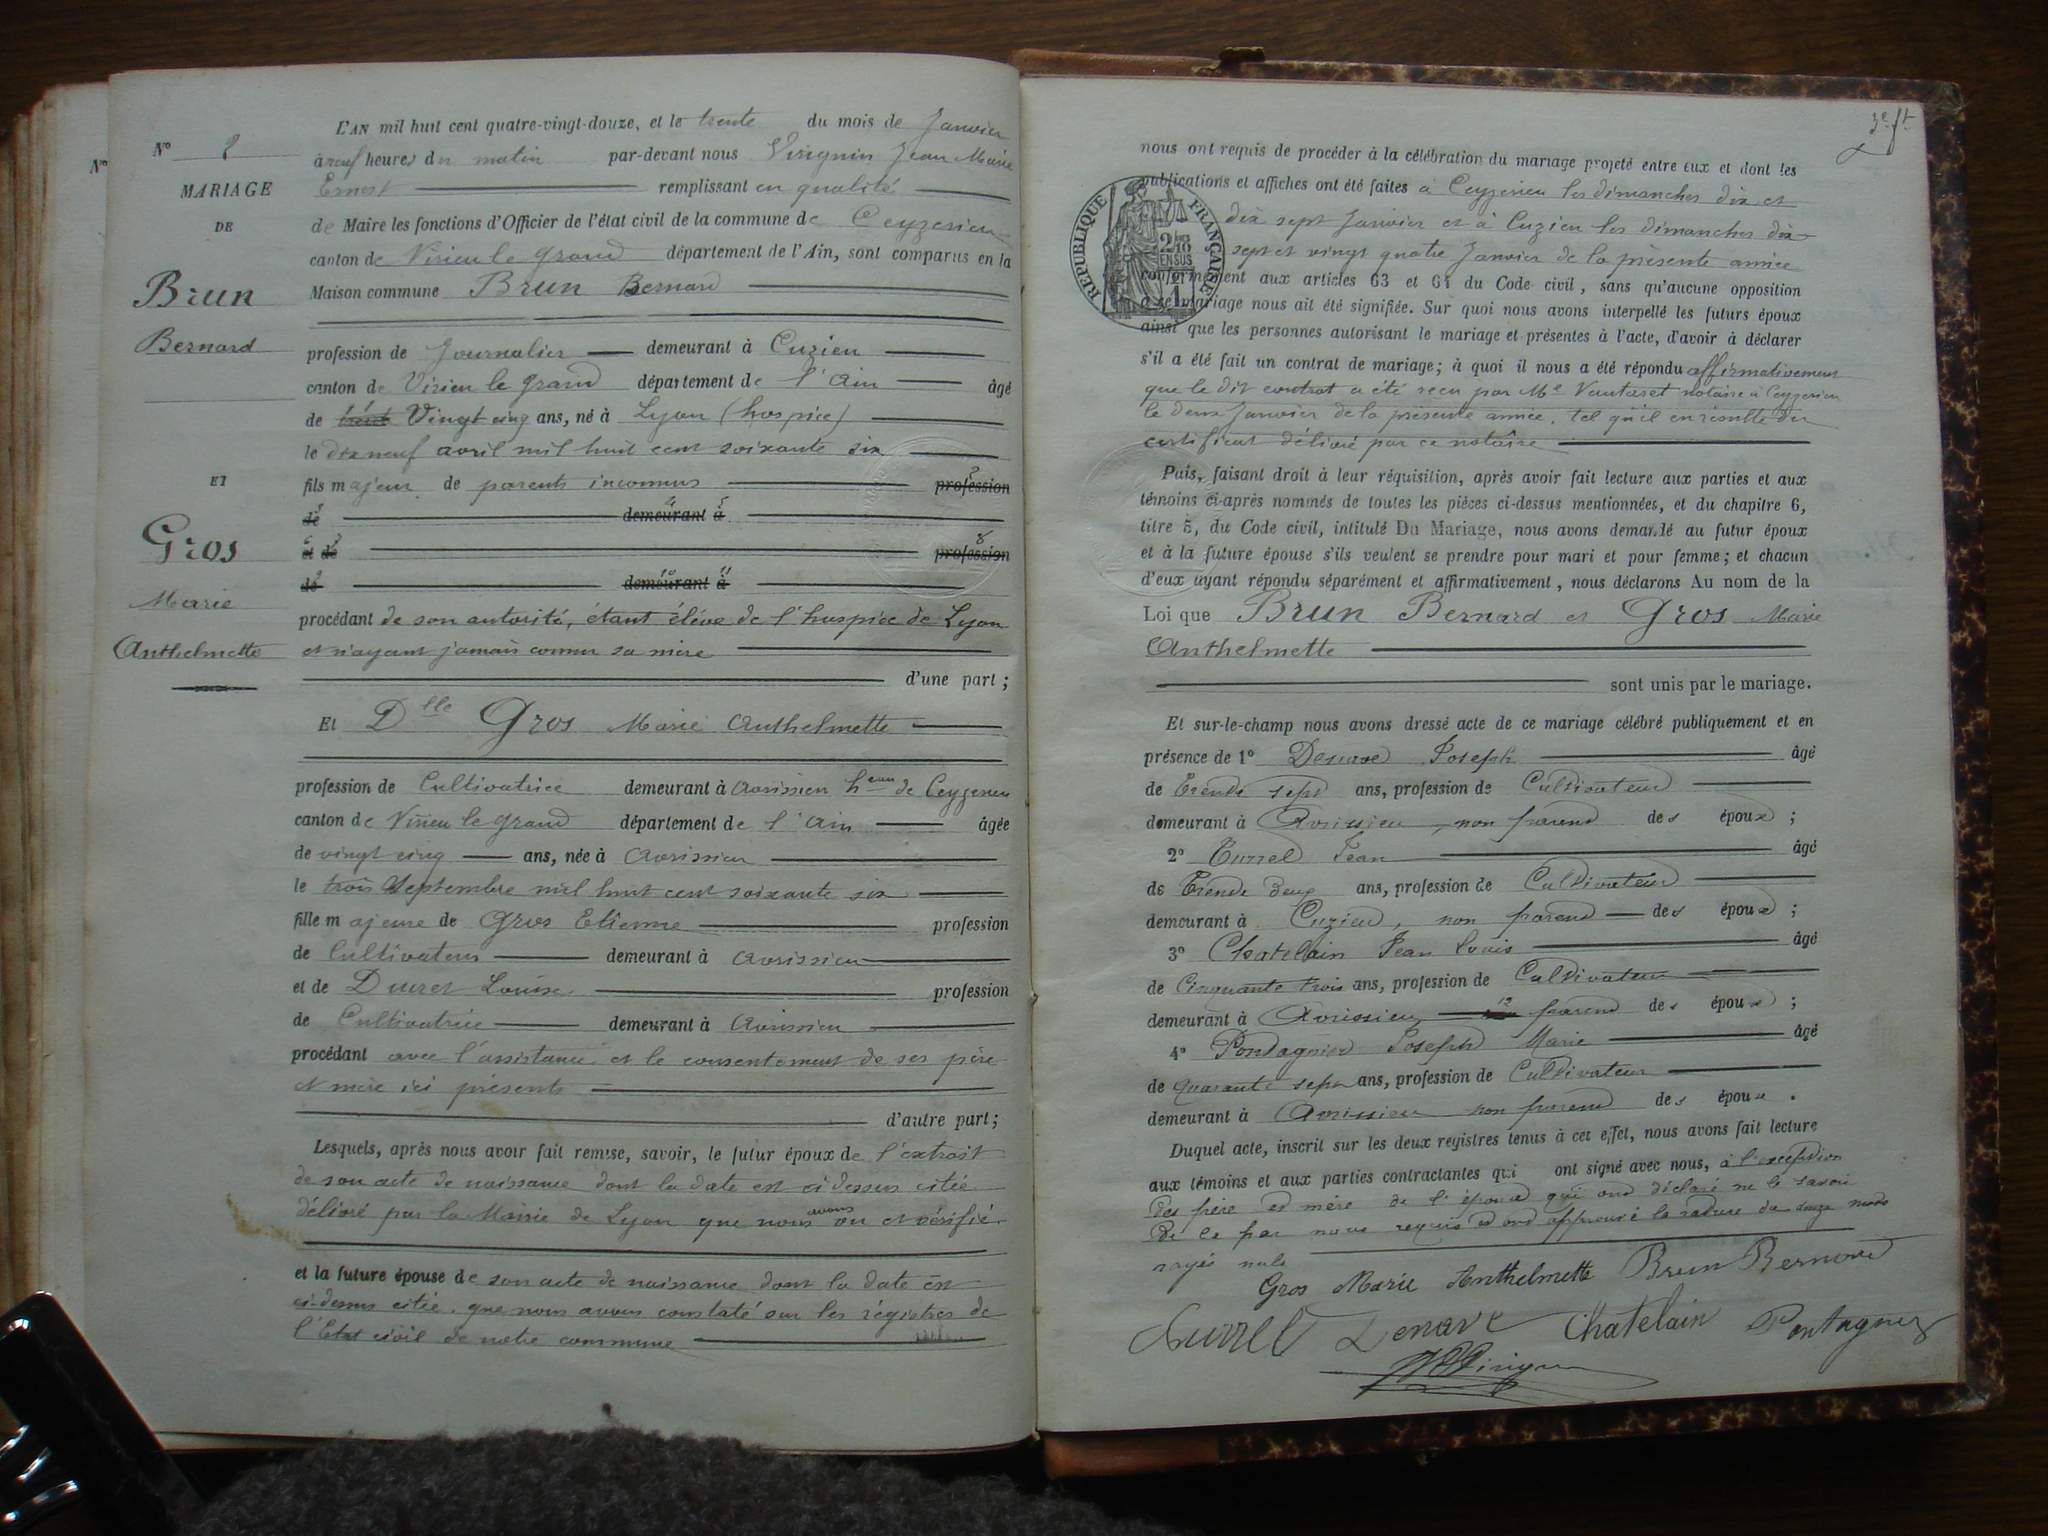 N° 2
MARIAGE
DE
Brun
Bernard
ET
Gros
Marie
Anthelmette
N°
L'AN mil huit cent quatre-vingt-douze, et le trente du mois de Janvier
à neuf heures du matin par-devant nous Vingnin Jean Marie
Ernest remplissant en qualité
de Maire les fonctions d'Officier de l'état civil de la commune de Ceyzerieu
canton de Virieu le grand département de l'Ain, sont comparus en la
Maison commune Brun Bernard
profession de Journalier demeurant à Cuzieu
canton de Virieu le grand département de l'Ain âgé
de Vingt cinq ans, né à Lyon (hospice)
le dix neuf avril mil huit cent soixante six
fils majeur de parents inconnus profession
de demeurant à
et de profession
de demeurant à
procédant de son autorité, étant élève de l'hospice de Lyon
et n'ayant jamais connu sa mère
d'une part ;
Et Dlle Gros Marie Anthelmette
profession de Cultivatrice demeurant à Avrissieu heau de Ceyzerieu
canton de Virieu le grand département de l'Ain âgée
de vingt cinq ans, née à Avrissieu
le trois Septembre mil huit cent soixante six
fille majeure de Gros Etienne profession
de Cultivateur demeurant à Avrissieu
et de Duret Louise profession
de Cultivatrice demeurant à Avrissieu
procédant avec l'assistance et le consentement de ses père
et mère ici présents
d'autre part ;
Lesquels, après nous avoir fait remise, savoir, le futur époux de l'extrait
de son acte de naissance dont la date est ci dessus citée
délivré par la Mairie de Lyon que nous avons vu et vérifié
et la future épouse de son acte de naissance dont la date est
ci-dessus citée, que nous avons constaté sur les régistres de
l'Etat civil de notre commune
3e ft
nous ont requis de procéder à la célébration du mariage projeté entre eux et dont les
publications et affiches ont été faites à Ceyzerieu les dimanches dix et
dix sept Janvier et à Cuzieu les dimanches dix
sept et vingt quatre Janvier de la présente année
conformément aux articles 63 et 64 du Code civil, sans qu'aucune opposition
à ce mariage nous ait été signifiée. Sur quoi nous avons interpellé les futurs époux
ainsi que les personnes autorisant le mariage et présentes à l'acte, d'avoir à déclarer
s'il a été fait un contrat de mariage ; à quoi il nous a été répondu affirmativement
que le dit contrat a été reçu par Me Vautaret notaire à Ceyzerieu
le deux Janvier de la présente année, tel qu'il en résulte du
certificat délivré par ce notaire
RÉPUBLIQUE FRANÇAISE
2/10 EN SUS
Puis, faisant droit à leur réquisition, après avoir fait lecture aux parties et aux
témoins ci-après nommés de toutes les pièces ci-dessus mentionnées, et du chapitre 6,
titre 5, du Code civil, intitulé Du Mariage, nous avons demandé au futur époux
et à la future épouse s'ils veulent se prendre pour mari et pour femme ; et chacun
d'eux ayant répondu séparément et affirmativement, nous déclarons Au nom de la
Loi que Brun Bernard et Gros Marie
Anthelmette
sont unis par le mariage.
Et sur-le-champ nous avons dressé acte de ce mariage célébré publiquement et en
présence de 1° Denave Joseph âgé
de Trente sept ans, profession de Cultivateur
demeurant à Avrissieu, non parent des époux ;
2° Turrel Jean âgé
de Trente deux ans, profession de Cultivateur
demeurant à Cuzieu, non parent des époux ;
3° Chatelain Jean Louis âgé
de Cinquante trois ans, profession de Cultivateur
demeurant à Avrissieu 12 parent des époux ;
4° Pontagnier Joseph Marie âgé
de quarante sept ans, profession de Cultivateur
demeurant à Avrissieu non parent des époux.
Duquel acte, inscrit sur les deux registres tenus à cet effet, nous avons fait lecture
aux témoins et aux parties contractantes qui ont signé avec nous, à l'exception
des père et mère de l'épouse qui ont déclaré ne le savoir
de ce par nous requis et ont approuvé la rature de douze mots
rayés nuls
Gros Marie Anthelmette Brun Bernard
Turrel Denave Chatelain Pontagnier